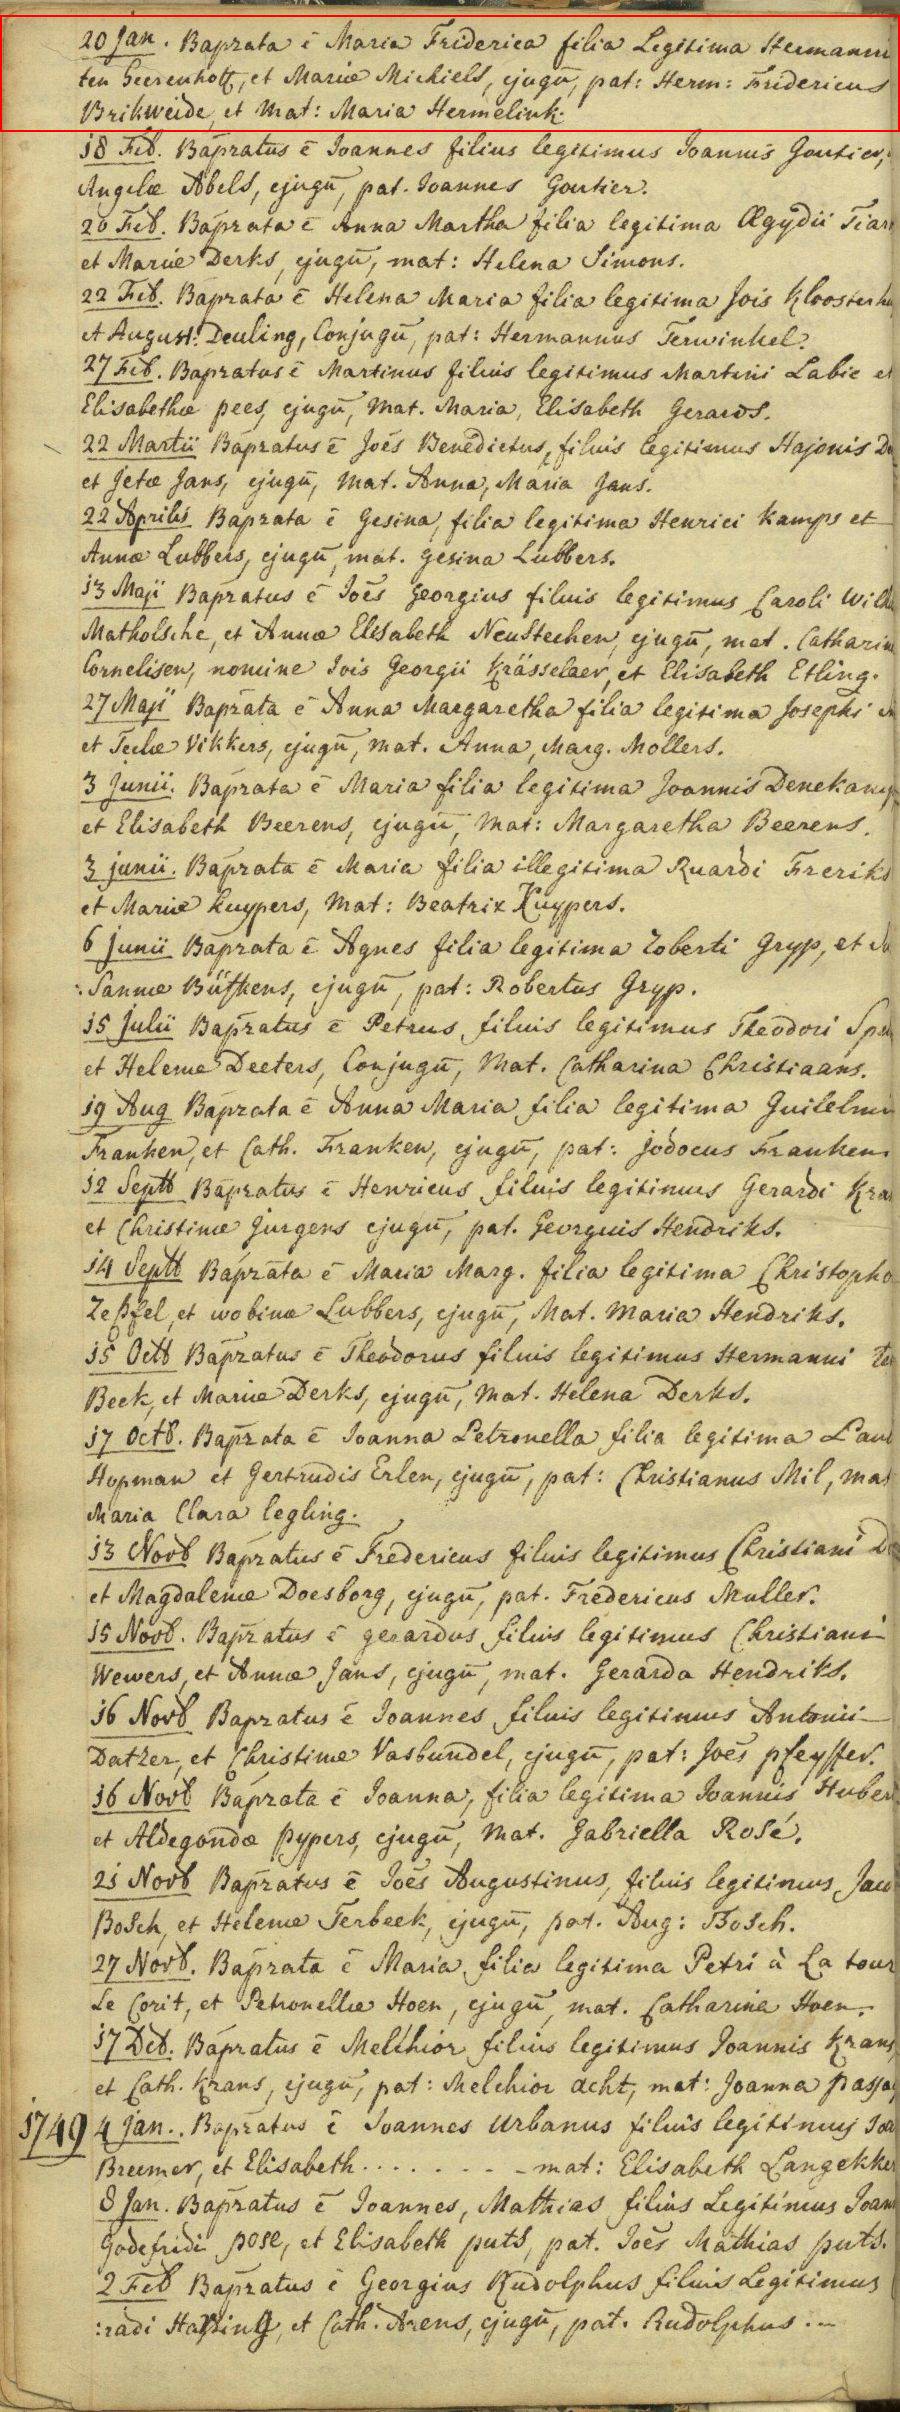 20 Jan. Bapzata ē Maria Friderica filia Legitima Hermanni
ten Geerenhoff, et Mariæ Michiels, cjugū, pat: Herm: Fridericus
Brikweide, et Mat: Maria Hermelink.
18 Feb. Bapzatus ē Joannes filius legitimus Joannis Goutier,
Angelæ Abels, cjugū, pat. Joannes Goutier.
20 Feb. Bapzata ē Anna Martha filia legitima Ægydii
et Mariæ Derks, cjugū, mat: Helena Simons.
22 Feb. Bapzata ē Helena Maria filia legitima Jois
et August: Deuling, Conjugū, pat: Hermannus Terwinkel.
27 Feb. Bapzatus ē Martinus filius legitimus Martini Labie et
Elisabethæ pees, cjugū, Mat. Maria, Elisabeth Gerards.
22 Martii Bapzatus ē Joēs Benedictus, filius legitimus Hajonis
et Jetæ Jans, cjugū, Mat. Anna, Maria Jans.
22 Aprilis Bapzata ē Gesina, filia legitima Henrici Kamps et
Annæ Lubbers, cjugū, mat. gesina Lubbers.
13 Maji Bapzatus ē Joēs Georgius filius legitimus Caroli
Matholsche, et Annæ Elisabeth Neustechen, cjugū, mat.
Cornelisen, nomine Jois Georgii Krässelaer, et Elisabeth Etling.
27 Maji Bapzata ē Anna Margaretha filia legitima Josephi
et Teclæ Vikkers, cjugū, mat. Anna, Marg. Mollers.
3 Junii. Bapzata ē Maria filia legitima Joannis
et Elisabeth Beerens, cjugū, Mat: Margaretha Beerens.
3 junii. Bapzata ē Maria filia illegitima Ruardi Freriks
et Mariæ kuypers, Mat: Beatrix Kuypers.
6 Junii Bapzata ē Agnes filia legitima Roberti Gryp, et
:sannæ Büskens, cjugū, pat: Robertus Gryp.
15 Julii Bapzatus ē Petrus, filius legitimus Theodori
et Helenæ Deeters, Conjugū, Mat. Catharina Christiaans.
19 Aug Bapzata ē Anna Maria filia legitima Guilelmi
Franken, et Cath. Franken, cjugū, pat: jodocus Franken.
12 Septb Bapzatus ē Henricus filius legitimus Gerardi
et Christinæ Jurgens cjugū, pat. Georgius Hendriks.
14 Septb Bapzata ē Maria Marg. filia legitima
Zepfel, et wobinæ Lubbers, cjugū, Mat. Maria Hendriks.
15 Octb Bapzatus ē Theodorus filius legitimus Hermanni
Beek, et Mariæ Derks, cjugū, Mat. Helena Derks.
17 Octb. Bapzata ē Joanna Petronella filia legitima
Hopman et Gertrudis Erlen, cjugū, pat: Christianus Mil,
Maria Clara legling.
13 Novb Bapzatus ē Fredericus filius legitimus Christiani
et Magdalenæ Doesborg, cjugū, pat. Fredericus Muller.
15 Novb. Bapzatus ē gerardus filius legitimus Christiani
Wewers, et Annæ Jans, cjugū, mat. Gerarda Hendriks.
16 Novb Bapzatus ē Joannes filius legitimus Antonii
Datzer, et Christinæ Vasbundel, cjugū, pat: Joēs pfeyffer.
16 Novb Bapzata ē Joanna, filia legitima Joannis
et Aldegondæ pypers, cjugū, Mat. Gabriella Rosé.
21 Novb Bapzatus ē Joēs Augustinus, filius legitimus,
Bosch, et Helenæ Terbeek, cjugū, pat. Aug: Bosch.
27 Novb. Bapzata ē Maria filia legitima Petri à La tour
Le Corit, et Petronellæ Hoen, cjugū, mat. Catharina Hoen.
17 Deb. Bapzatus ē Melchior filius legitimus Joannis Krans,
et Cath. Krans, cjugū, pat: Melchior acht, mat: Joanna
1749 4 Jan. Bapzatus ē Joannes Urbanus filius legitimus
Breemer, et Elisabeth . . . . . . . . mat: Elisabeth
8 Jan. Bapzatus ē Joannes, Mathias filius Legitimus
Godefridi pose, et Elisabeth puts, pat. Joēs Mathias puts.
2 Feb Bapzatus ē Georgius Rudolphus filius Legitimus
:radi et Cath. Arens, cjugū, pat. Rudolphus ...